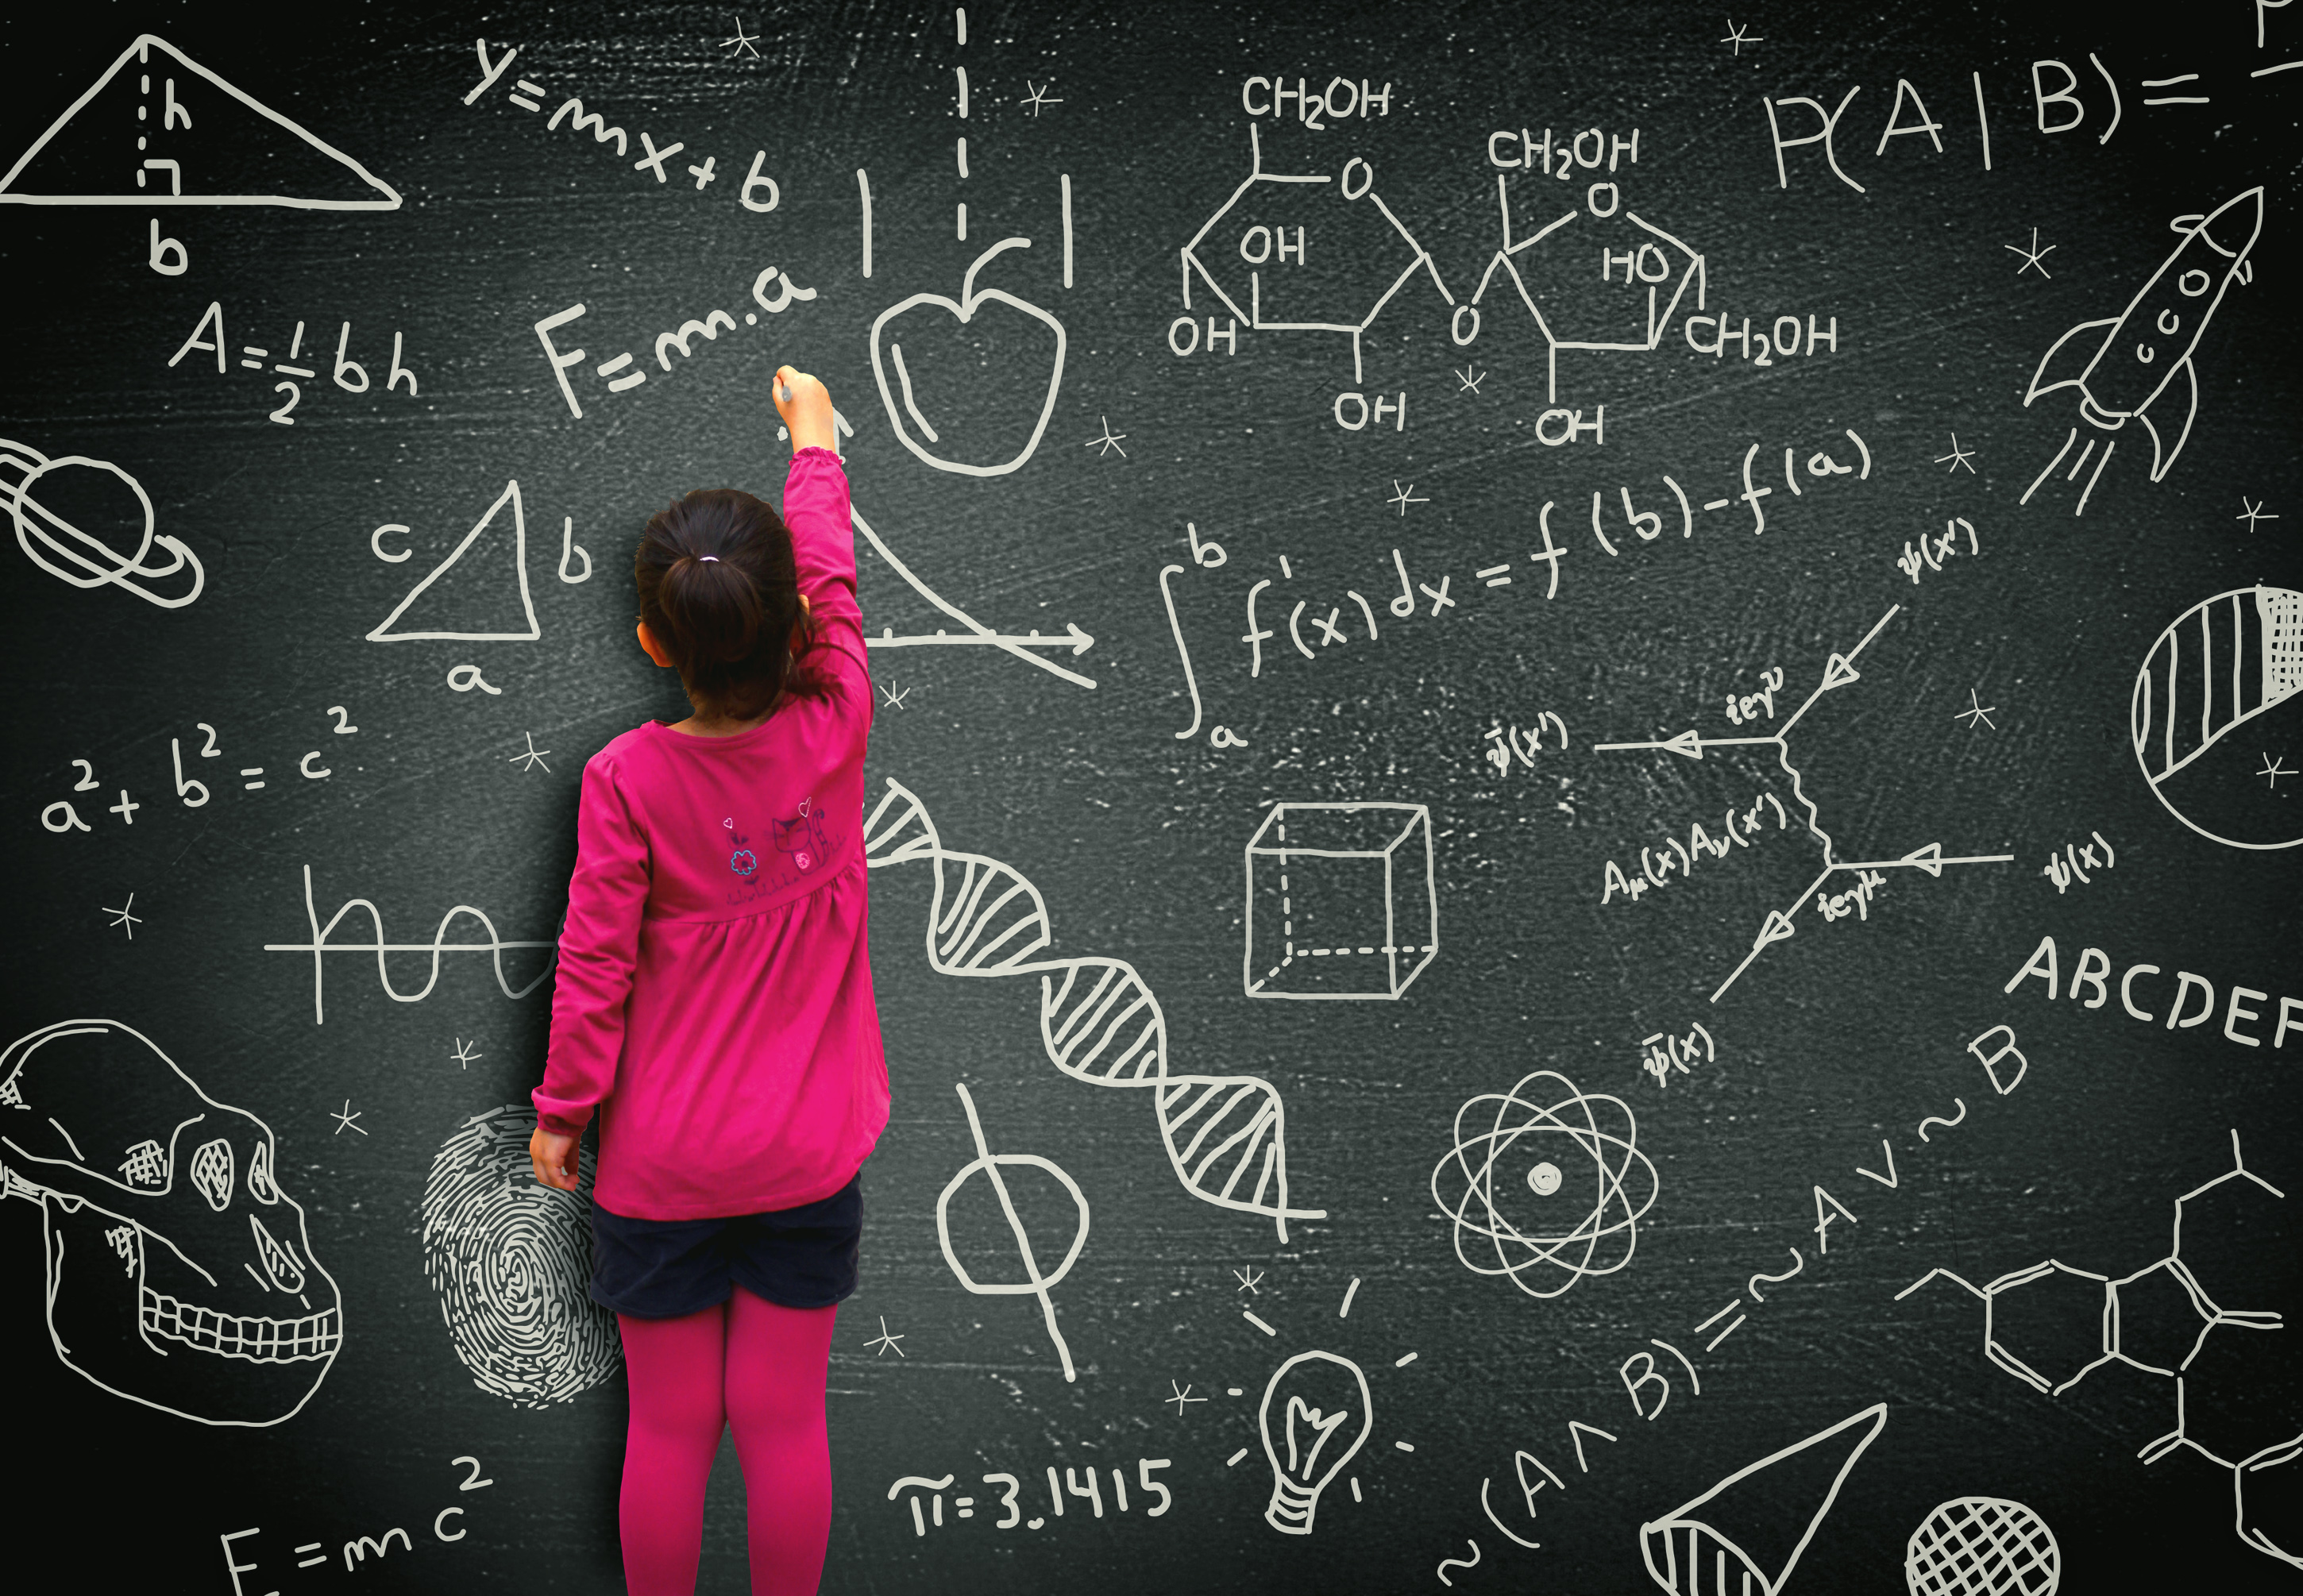 h
b
y=mx+b
A=1/2 bh
F=m.a
CH₂OH
O
OH
OH
OH
O
CH₂OH
O
HO
CH₂OH
OH
P(A|B)=
c
b
a
a²+b²=c²
∫ₐᵇ f'(x)dx = f(b)-f(a)
ψ(x')
ieγ^ν
ψ̄(x')
Aμ(x)Aν(x')
ψ(x)
ieγ^μ
ψ̄(x)
ABCDEF
~(A∧B)=~A∨~B
π=3.1415
E=mc²